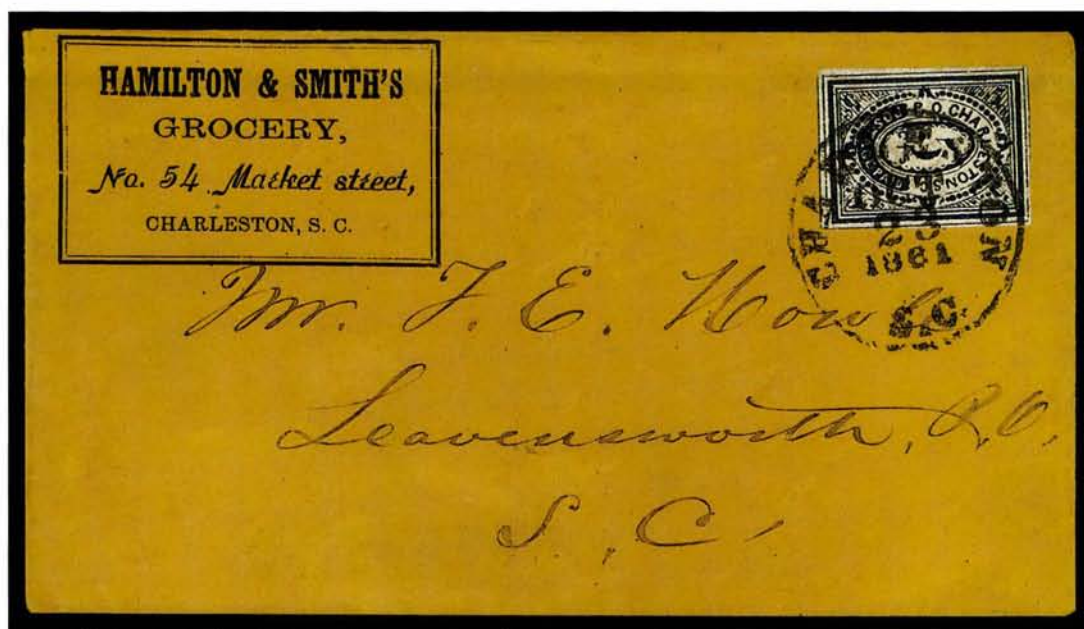 HAMILTON & SMITH'S
GROCERY,
No. 54 Market street,
CHARLESTON, S. C.
P. O. CHARLESTON S. C.
PAID
5
CHARLESTON
23
1861
S.C.
Mr. F. E. How
Leavensworth, P.O.
S. C.